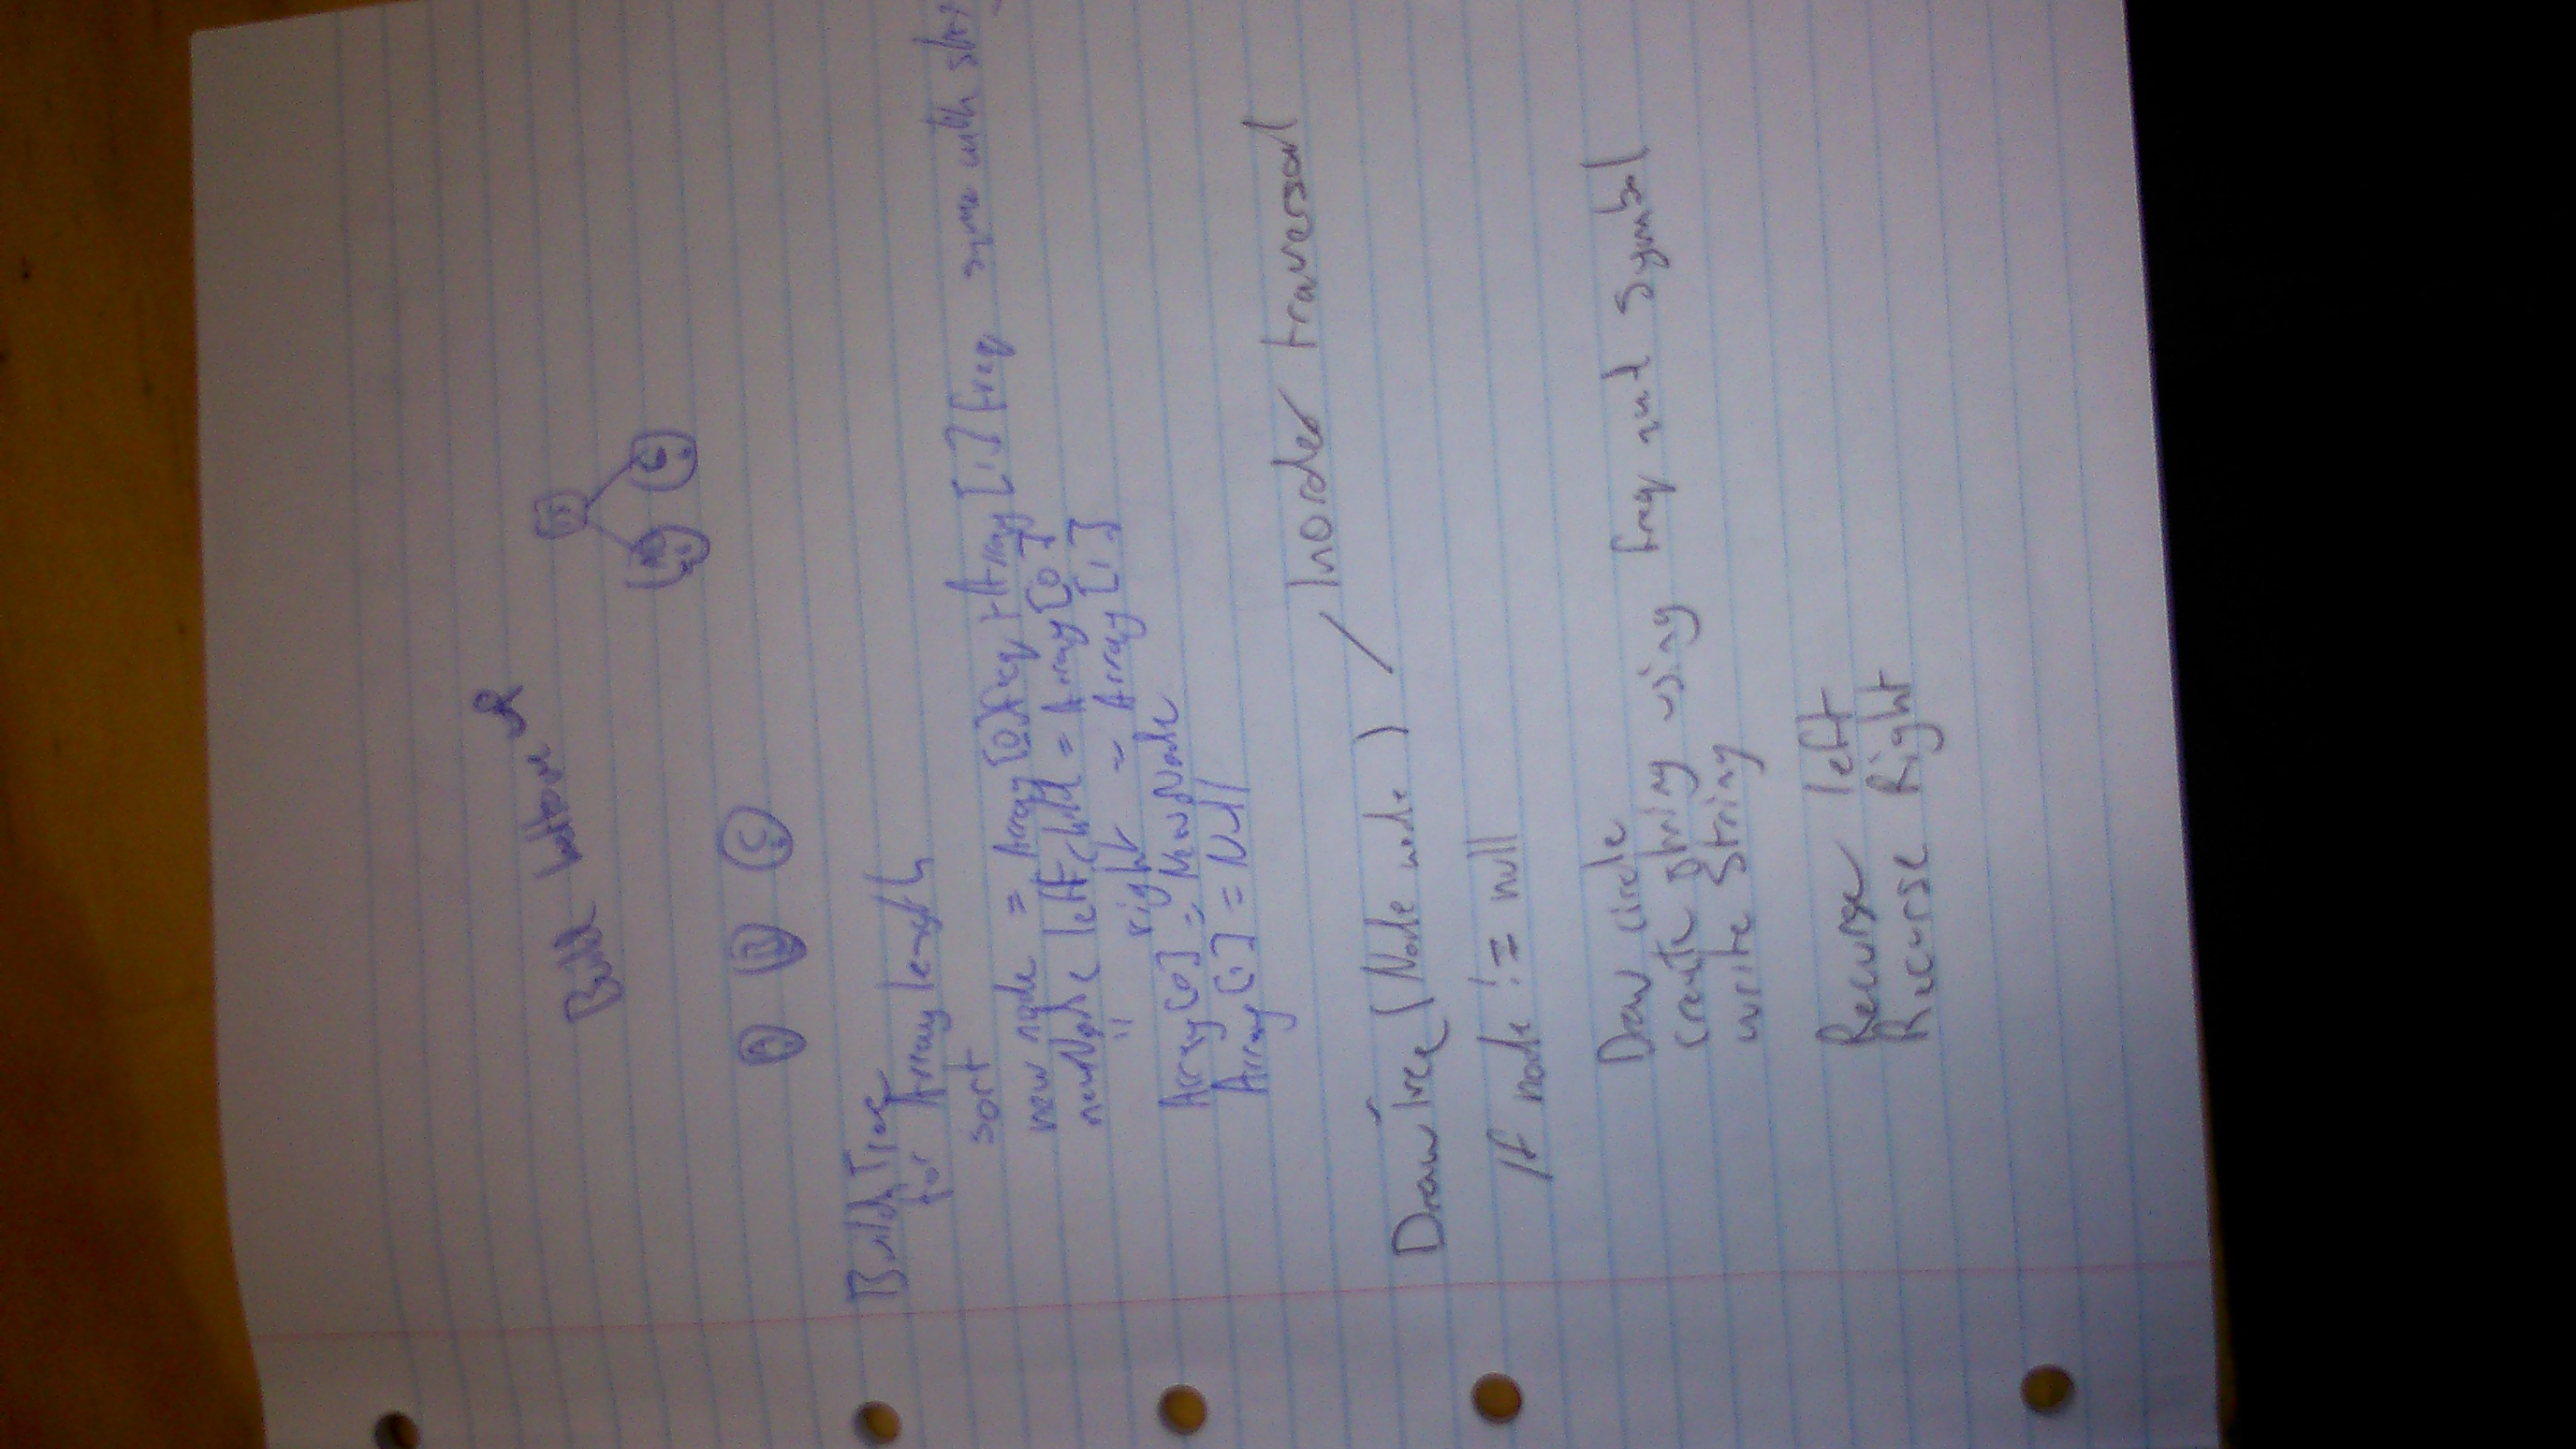 Build bottom up
A B C
Build Tree
for Array length
sort
new node = Array[0]freq + Array[1]freq same with
newNode left child = Array[0]
" right = Array[1]
Array[0] = NewNode
Array[1] = Null
DrawTree(Node node) / Inorder traversal
If node != null
Draw circle
create string using freq and symbol
write String
Recurse left
Recurse Right